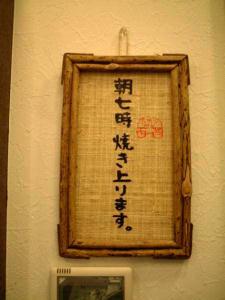 朝七時焼き上ります。